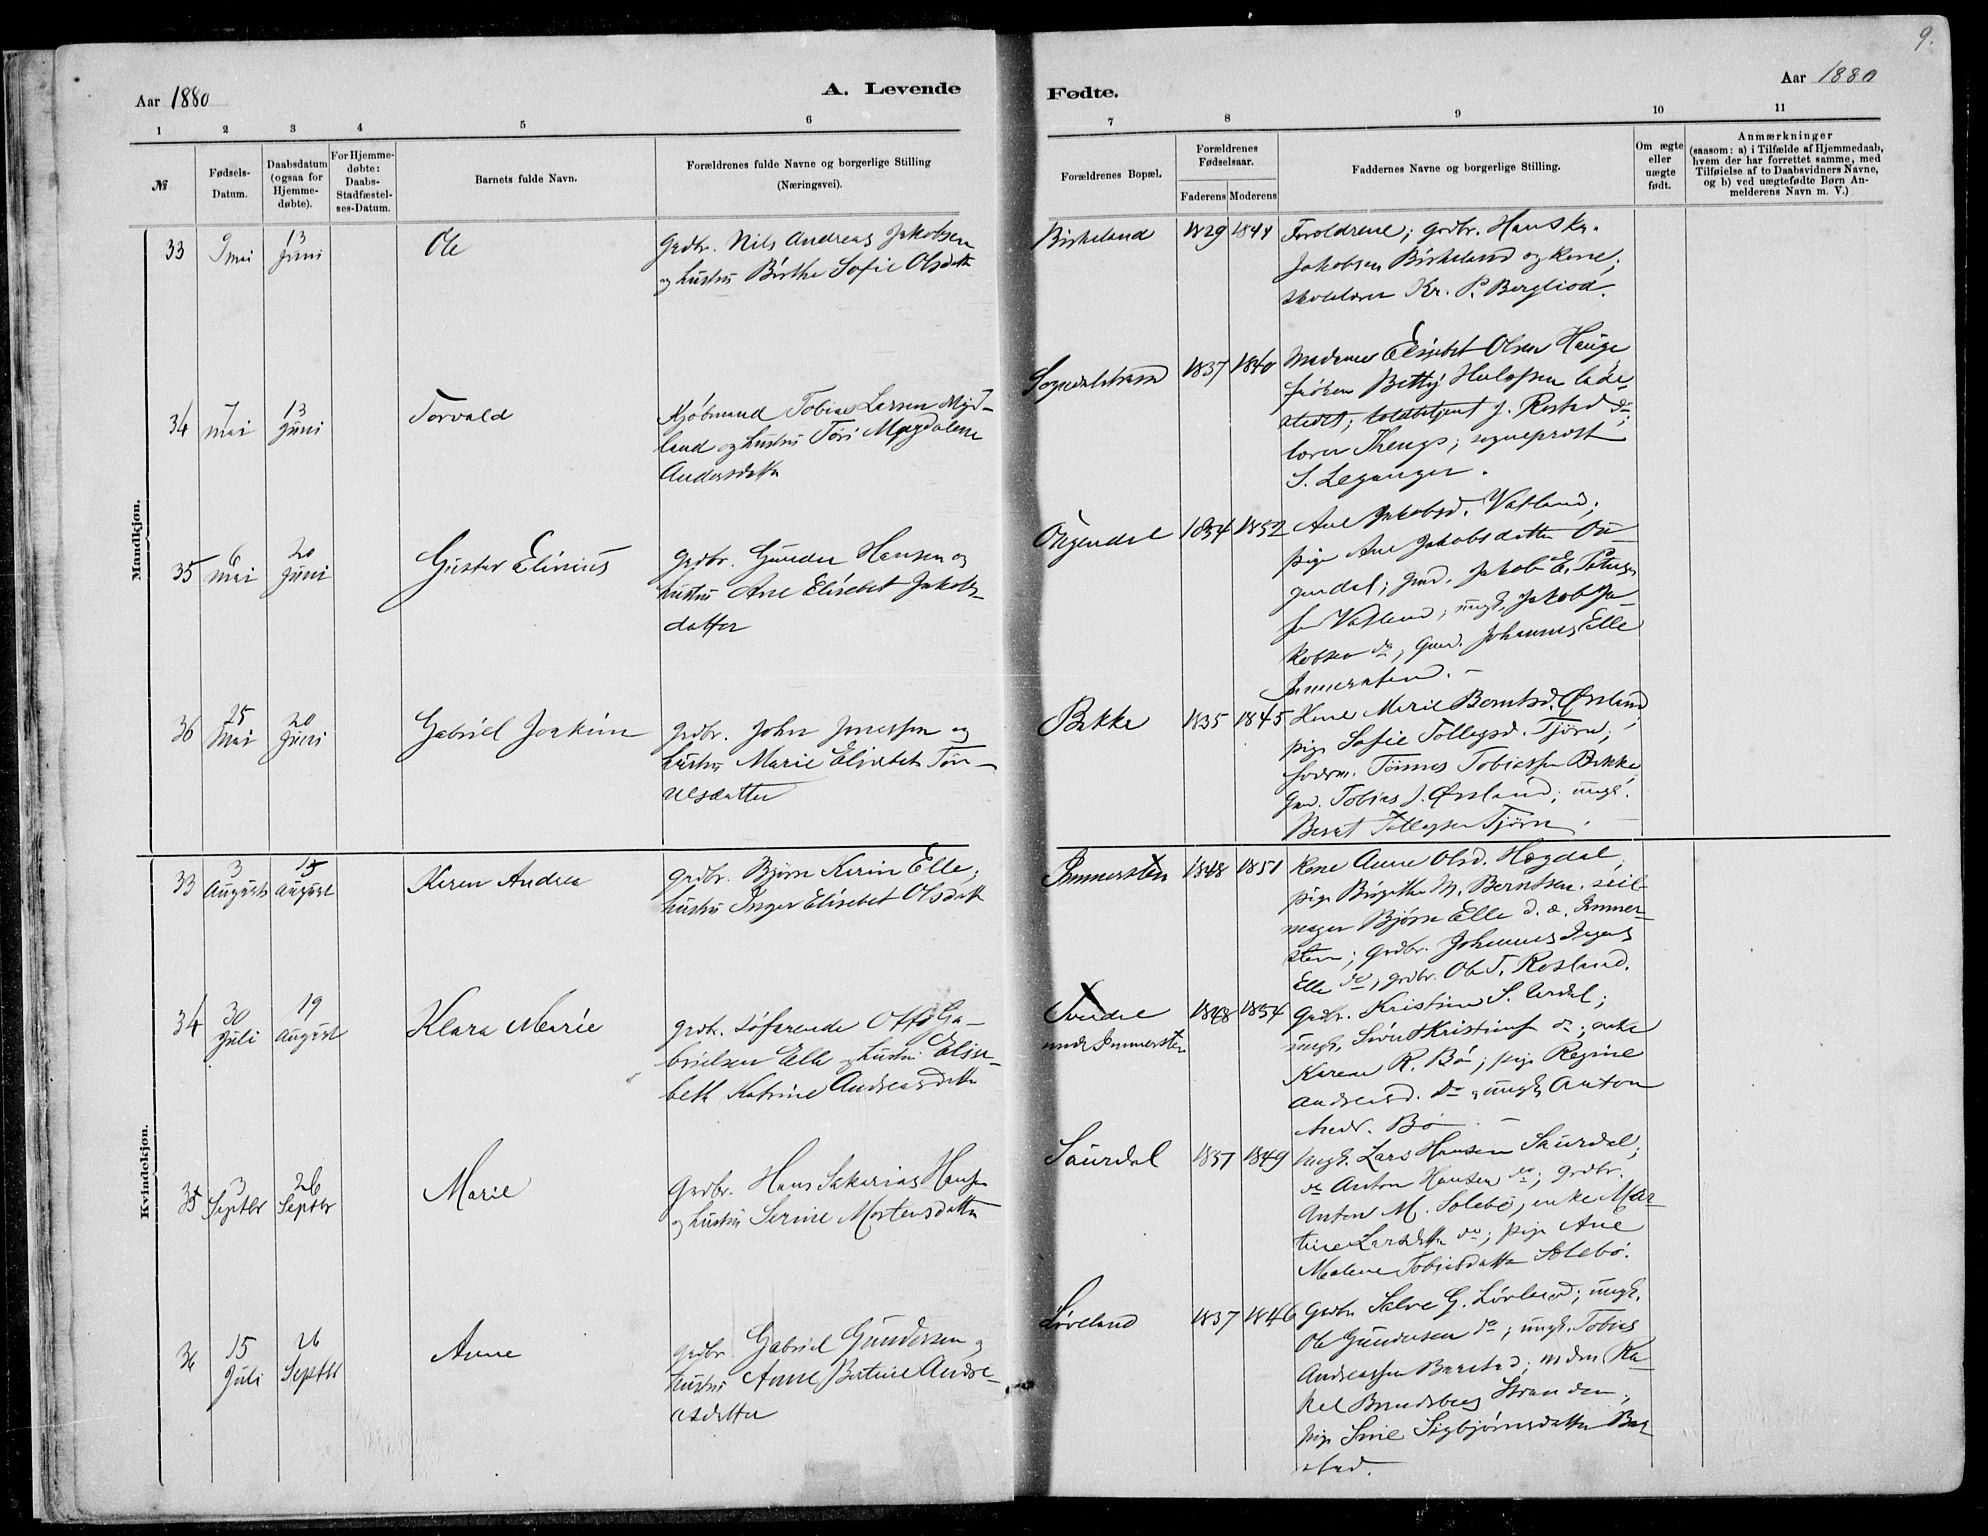 9.
Aar 1880
A. Levende
Fødte.
Aar 1880
1 2 3 4 5 6 7 8 9 10 11
№
Fødsels-
Datum.
Daabsdatum
(ogsaa for
Hjemme-
døbte).
For Hjemme-
døbte:
Daabs-
Stadfæstel-
ses-Datum.
Barnets fulde Navn.
Forældrenes fulde Navne og borgerlige Stilling
(Næringsvei).
Forældrenes Bopæl.
Forældrenes
Fødselsaar.
Faderens Moderens
Faddernes Navne og borgerlige Stilling.
Om ægte
eller
uægte
født.
Anmærkninger
(saasom: a) i Tilfælde af Hjemmedaab,
hvem der har forrettet samme, med
Tilføielse af to Daabsvidners Navne,
og b) ved uægtefødte Børn An-
melderens Navn m. V.)
Mandkjøn.
33
9 mai
13
Juni
Ole
Grdbr. Nils Andreas Jakobsen
og hustru Birthe Sofie Olsdatt
Birkeland
1829
1844
Forældrene; grdbr. Hans
Jakobsen Birkeland og kone;
Kr. P. Bergliod.
34
7
mai
13
Juni
Torvald
Kjøbmand Tobias Larsen Myd-
land og hustru Tori Magdalene
Andersdatter
Sogndalstrand
1837
1840
Madame Elisebet Olsen Hauge
frøken Betty lade-
stedet; toldbetjent J. Restad do;
lærer Thengs; sogneprest
S. Leganger.
35
6
mai
20
Juni
Gustav Elinius
Grdbr. Gunder Hansen og
hustru Ane Elisebet Jakobs-
datter
Ougendal
1834
1852
Ane Jakobsd. Vatland;
pige Ane Jakobsdatter Ou-
gendal; gmd. Jakob E. Peters
Vatland; ungk. Jakob Ja-
kobsen do; gmd. Johannes Elle
Immersten.
36
25
Mai
20
Juni
Gabriel Joakim
Grdbr. John Jonassen og
hustru Marie Elisebet Tøn-
nesdatter
Bakke
1835
1845
Kone Marie Berntsd. Øvsland,
pige Sofie Tollagsd. Tjørn;
Tønnes Tobiassen Bakke,
Gmd. Tobias J. Øvsland; ungk.
Bernt Tollagsen Tjørn.
Kvindekjøn.
33
3
August
15
August
Karen Andrea
grdbr. Bjørn Karin Elle;
hustru Inger Elisebet Olsdatt
Immersten
1848
1851
Kone Anne Olsd. Hægdal,
pige Birgithe M. Berntsen. seil-
mager Bjørn Elle d. æ. Immer-
sten; grdbr. Johannes
Elle do, grdbr. Ole T. Rosland.
34
30
Juli
19
August
Klara Marie
grdbr. søfarende Otto Ga-
brielsen Elle og hustru Elisa-
beth Katrine Andreasdatt
under Immersten
1848
1854
Grdbr. Kristian S. Aardal;
ungk. Sivert Kristians do; enke
Karen R. Bø; pige Regine
Andreasd. do, ungk. Anton
Andr. Bø
35
3
Septbr
26
Septbr
Marie
Grdbr. Hans Sakarias Hansen
og hustru Serine Mortensdatter
Saurdal
1851
1849
Ungk. Lars Hansen Saurdal;
do Anton Hansen do; grdbr.
Anton M. Solebø, enke Mar-
tine Larsdatter do; pige Ane
Malene Tobiasdatter Solebø.
36
15
Juli
26
Septbr
Anne
grdbr. Gabriel Gundersen og
hustru Anne Bertine Andre-
asdatter
Løveland
1837
1846
Grdbr Salve G. Løvland; ungk.
Ole Gundersen do; ungk. Tobias
Andreassen Barstad; Ra-
kel Brendsberg Stranden;
pige Sine Sigbjørnsdatter Bar
stad.